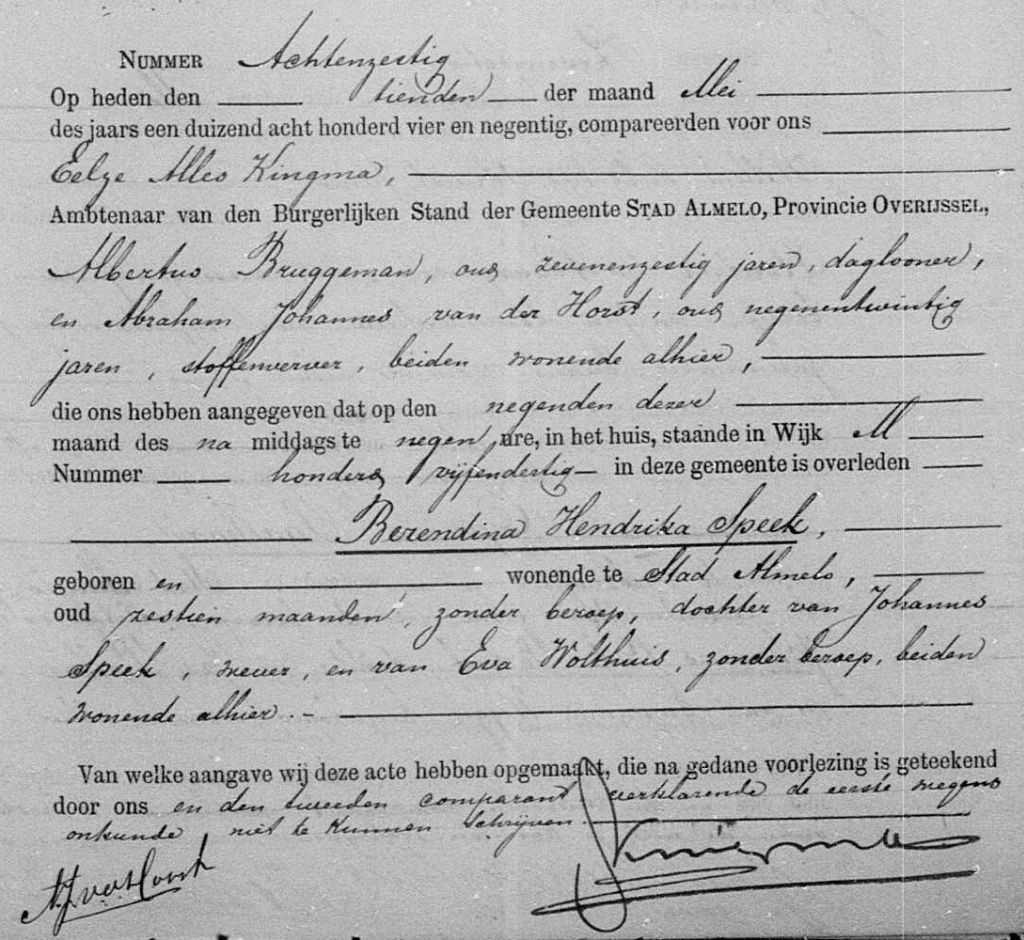 NUMMER Achtenzestig
Op heden den tienden der maand Mei
des jaars een duizend acht honderd vier en negentig, compareerden voor ons
Eelze Alles Kingma,
Ambtenaar van den Burgerlijken Stand der Gemeente STAD ALMELO, Provincie OVERIJSSEL,
Albertus Bruggeman, oud zevenenzestig jaren, daglooner,
en Abraham Johannes van der Horst, oud negenentwintig
jaren, stoffenverver, beiden wonende alhier,
die ons hebben aangegeven dat op den negenden dezer
maand des na middags te negen ure, in het huis, staande in Wijk M
Nummer honderd vijfendertig in deze gemeente is overleden
Berendina Hendrika Speek,
geboren en wonende te Stad Almelo,
oud zestien maanden, zonder beroep, dochter van Johannes
Speek, wever, en van Eva Wolthuis, zonder beroep, beiden
wonende alhier.-
Van welke aangave wij deze acte hebben opgemaakt, die na gedane voorlezing is geteekend
door ons en den tweeden comparant verklarende de eerste wegens
onkunde, niet te kunnen schrijven.
AJ vd Horst Kingma